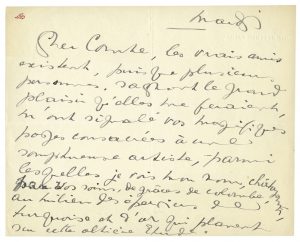 mardi
Cher Comte, les vrais amis
existent, puisque plusieurs
personnes, sachant le grand
plaisir qu'elles me feraient,
m'ont signalé vos magnifiques
pages consacrées à une
somptueuse artiste, parmi
lesquelles je vois mon nom,
par vos soins, de grâces de colombe
au milieu des
turquoise et d'or qui planent
sur cette altière